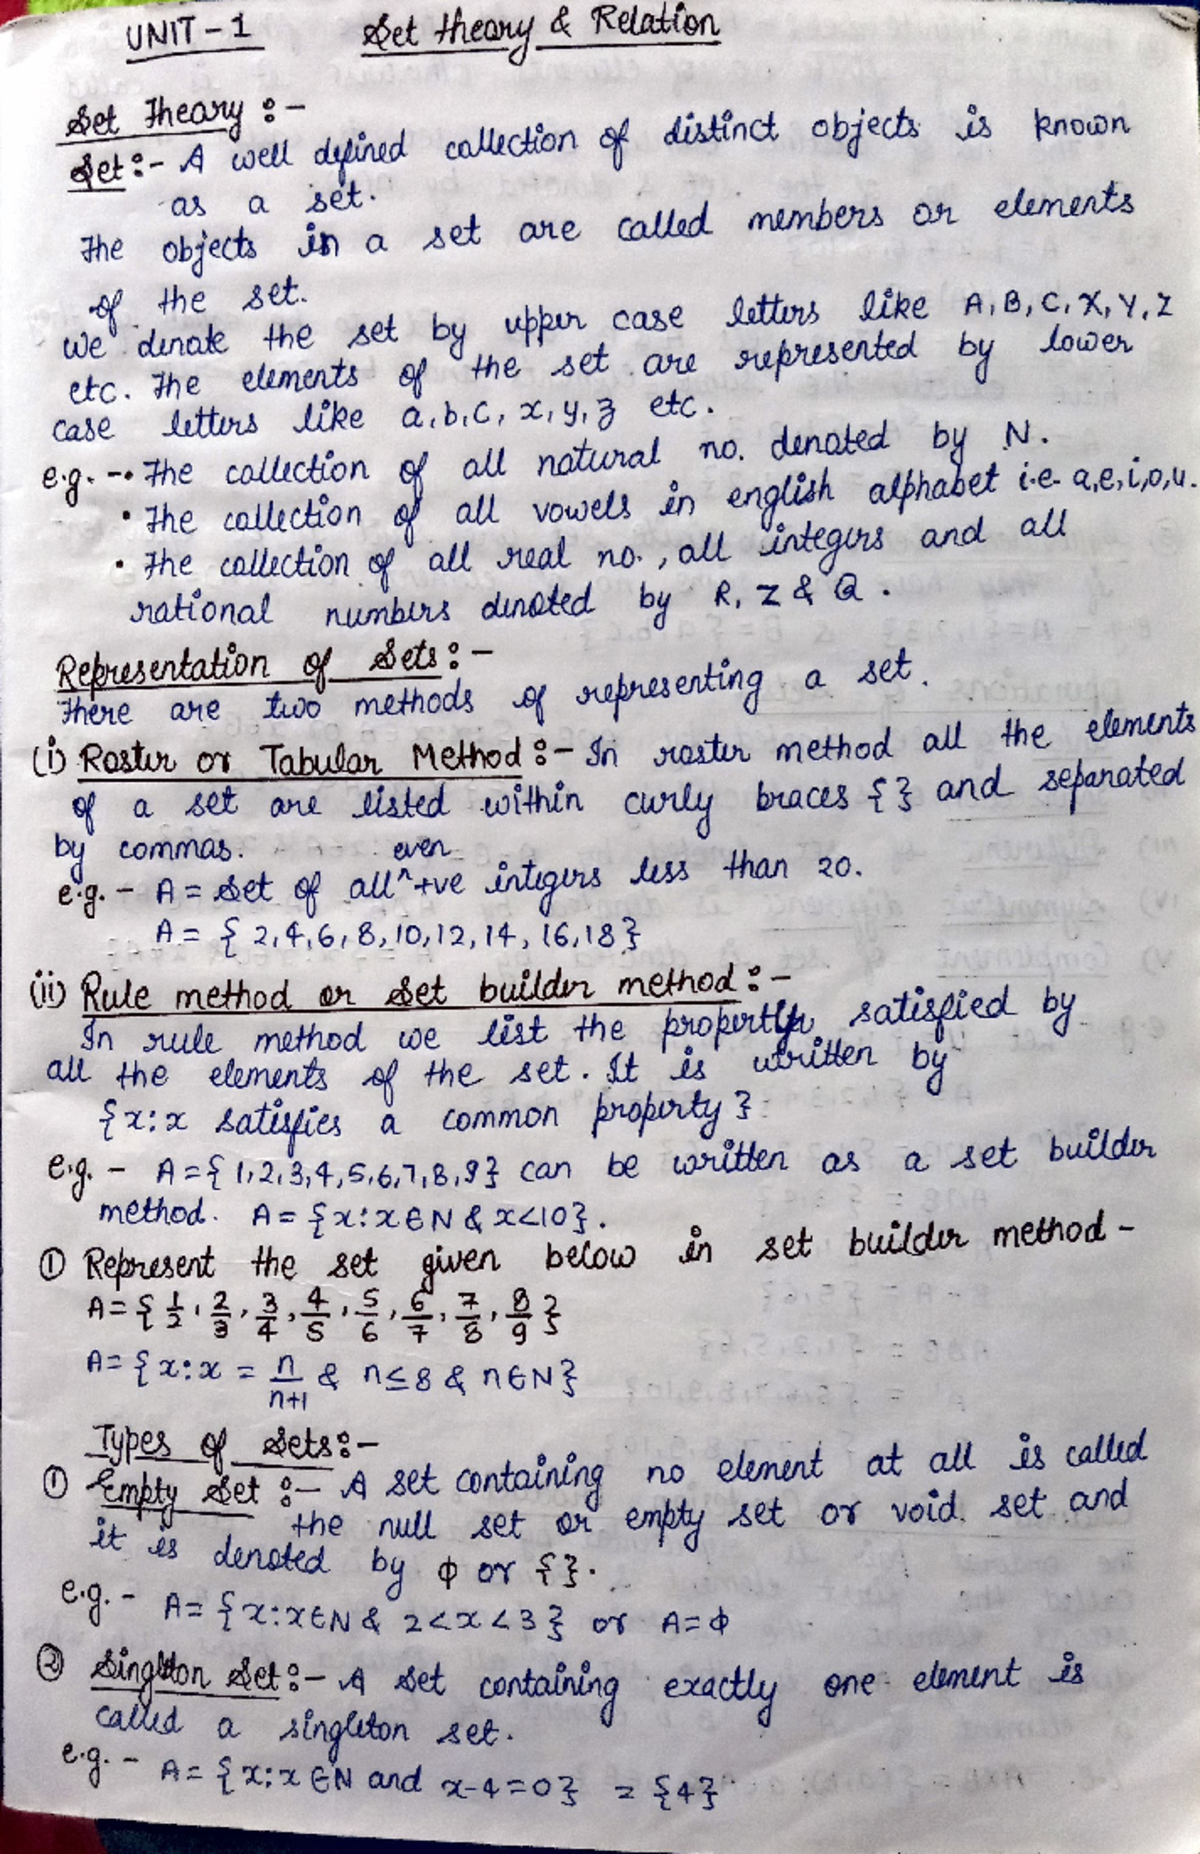 UNIT-1 Set theory & Relation
Set Theory :-
Set:- A well defined collection of distinct objects is known
as a set.
The objects in a set are called members or elements
of the set.
We denote the set by upper case letters like A, B, C, X, Y, Z
etc. The elements of the set are represented by lower
case letters like a, b, c, x, y, z etc.
e.g. - • The collection of all natural no. denoted by N.
• The collection of all vowels in english alphabet i.e. a,e,i,o,u.
• The collection of all real no., all integers and all
rational numbers denoted by R, Z & Q.
Representation of Sets:-
There are two methods of representing a set.
(i) Roster or Tabular Method:- In roster method all the elements
of a set are listed within curly braces { } and separated
by commas.
e.g. - A = Set of all ^even +ve integers less than 20.
A = { 2,4,6,8,10,12,14,16,18}
(ii) Rule method or Set builder method:-
In rule method we list the property satisfied by
all the elements of the set. It is written by
{x:x satisfies a common property}
e.g. - A={1,2,3,4,5,6,7,8,9} can be written as a set builder
method. A= {x:x∈N & x<10}.
① Represent the set given below in set builder method -
A={ 1/2, 2/3, 3/4, 4/5, 5/6, 6/7, 7/8, 8/9 }
A= {x:x = n/n+1 & n≤8 & n∈N}
Types of Sets:-
① Empty Set :- A set containing no element at all is called
the null set or empty set or void set and
it is denoted by ϕ or { }.
e.g. - A= {x:x∈N & 2<x<3} or A=ϕ
② Singleton Set:- A set containing exactly one element is
called a singleton set.
e.g. - A= {x:x∈N and x-4=0} = {4}